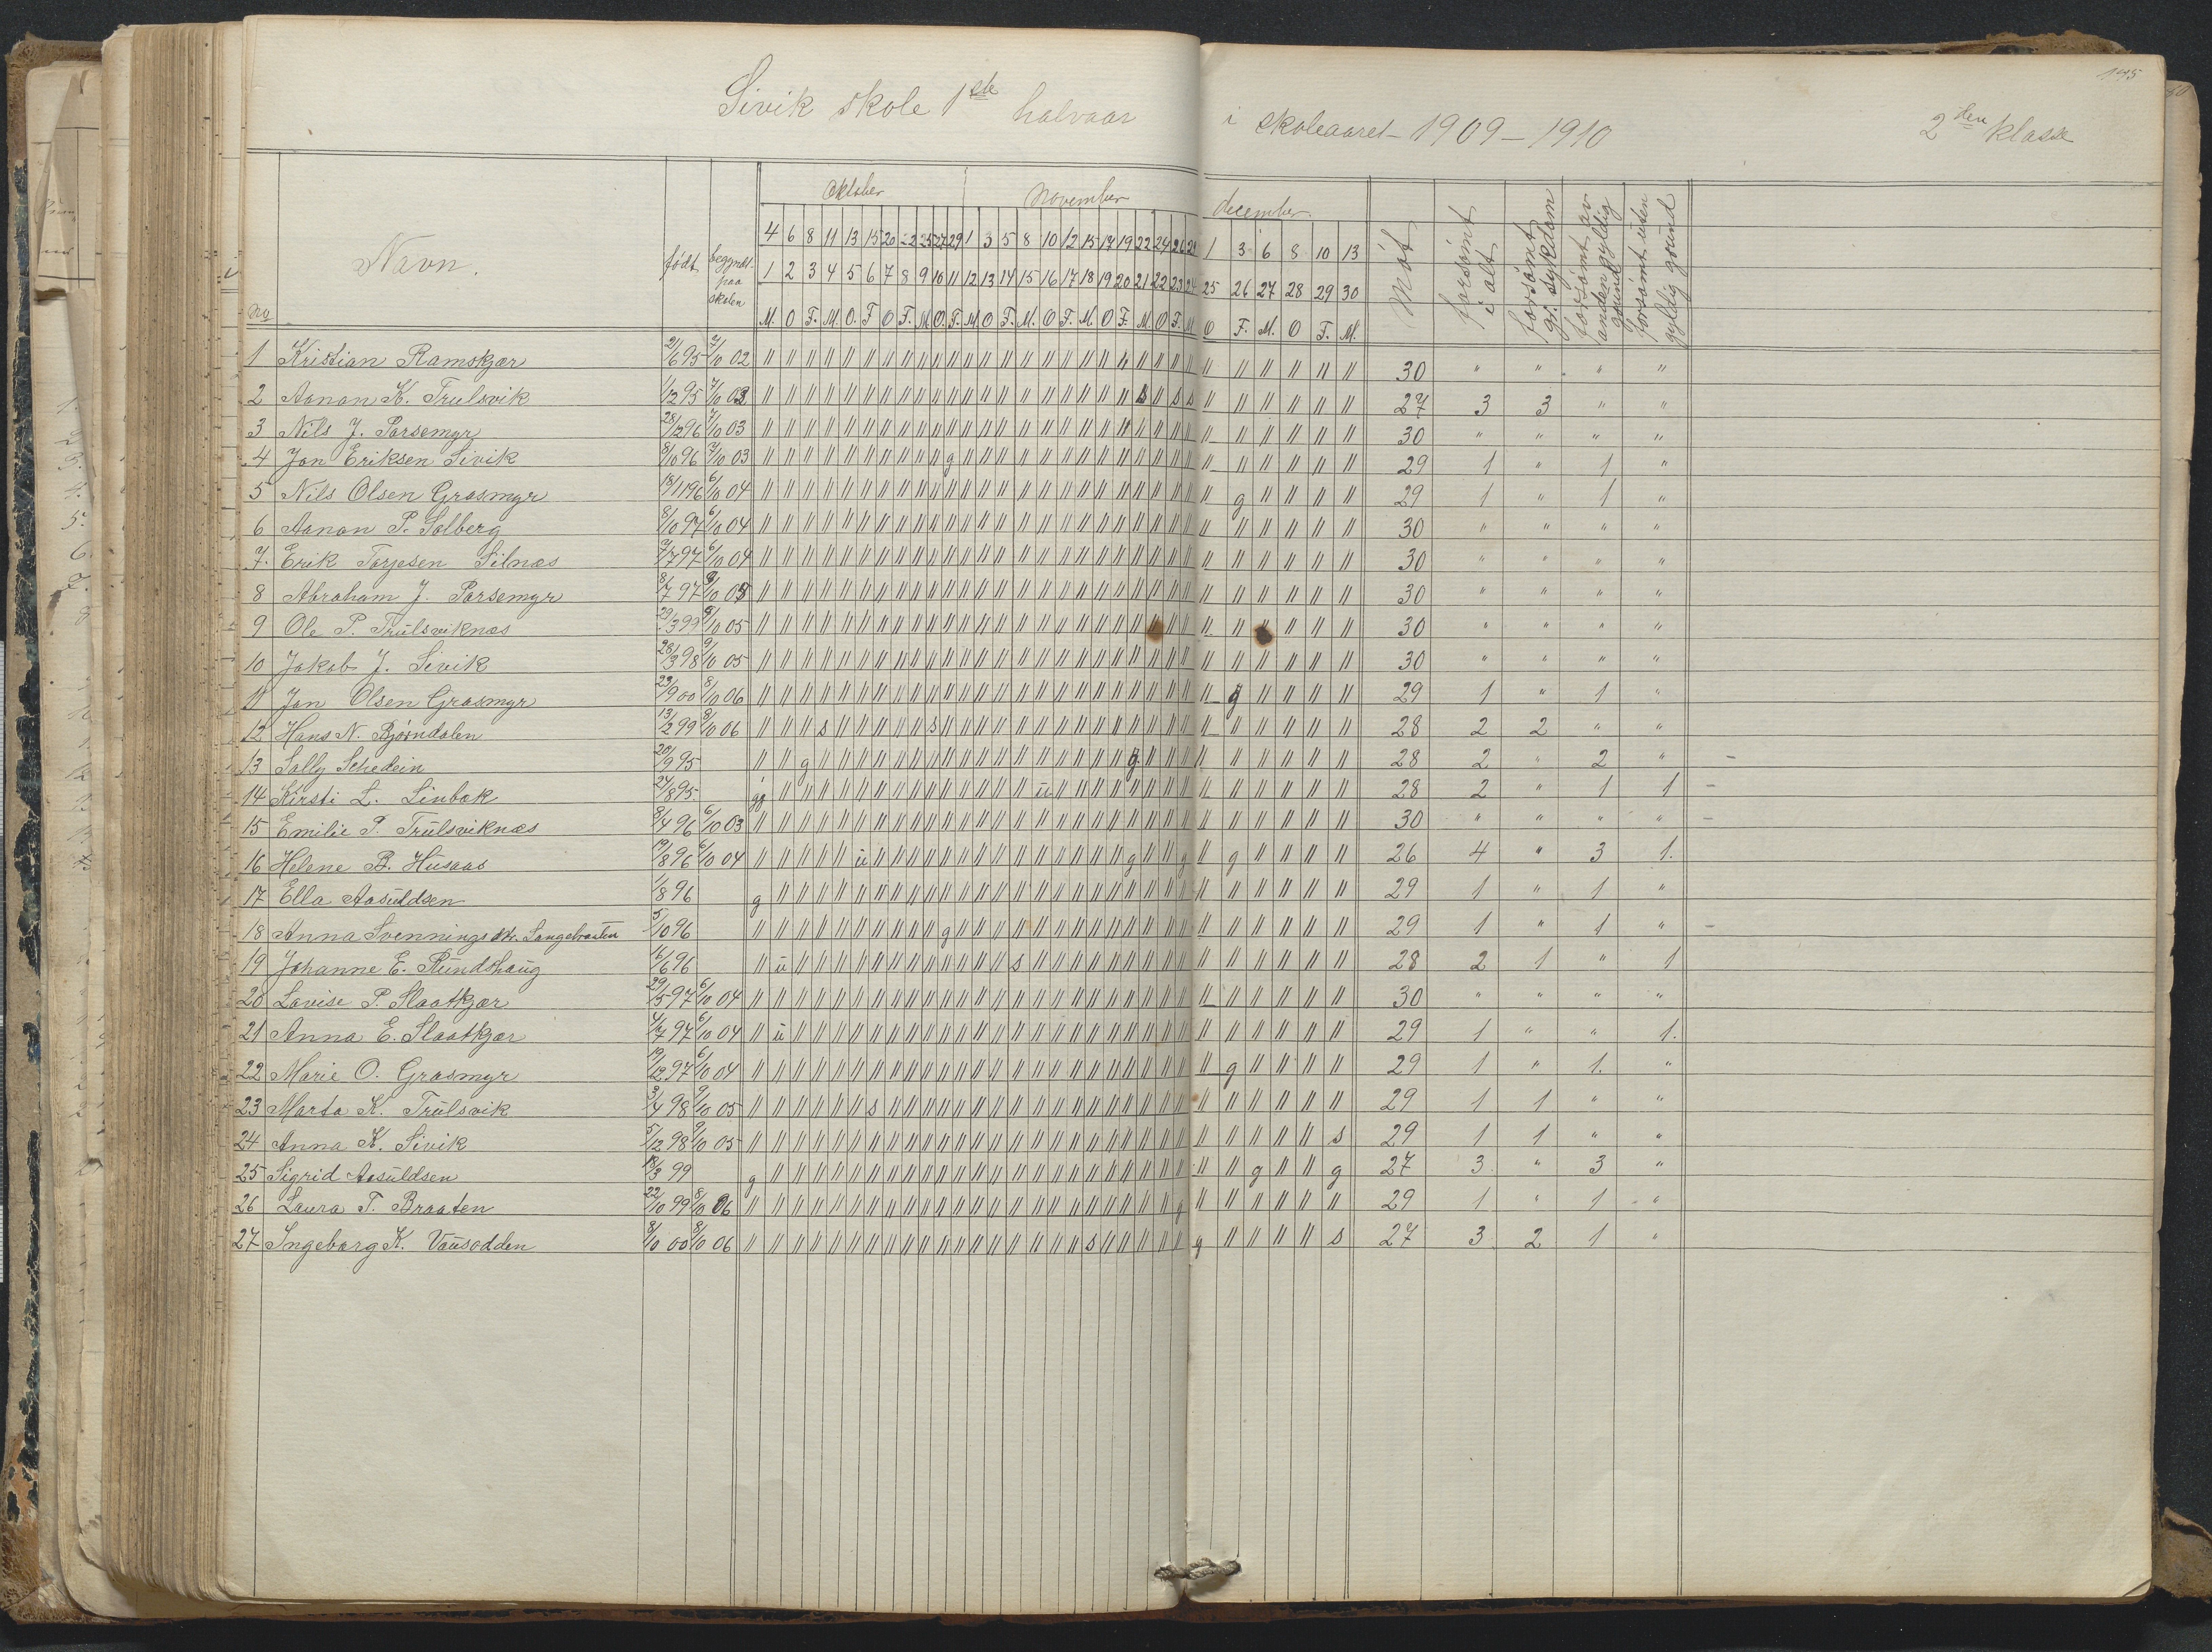 175
Sivik skole 1ste halvaar i skoleaaret 1909-1910 2den klasse
Oktober November december.
No Navn. født begyndt paa skolen Møt forsømt i alt forsømt gr. sykdom forsømt av anden gyldig grund forsømt uten gyldig grund
4 6 8 11 13 15 20 22 25 27 29 1 3 5 8 10 12 15 17 19 22 24 26 29 1 3 6 8 10 13
1 2 3 4 5 6 7 8 9 10 11 12 13 14 15 16 17 18 19 20 21 22 23 24 25 26 27 28 29 30
M. O F. M. O. F O F. M. O. F. M O F. M. O F. M. O F. M O F. M O F. M. O F. M.
1 Kristian Ramskjær 2/6 95 7/10 02 30 " " " "
2 Aanon K. Trulsvik 1/12 95 7/10 03 27 3 3 " "
3 Nils J. Porsemyr 28/12 96 7/10 03 30 " " " "
4 Jon Eriksen Sivik 8/10 96 7/10 03 g 29 1 " 1 "
5 Nils Olsen Grasmyr 18/11 96 6/10 04 g 29 1 " 1 "
6 Aanon P. Solberg 8/10 97 6/10 04 30 " " " "
7. Erik Torjesen Silnæs 7/7 97 6/10 04 30 " " " "
8 Abraham J. Porsemyr 8/7 97 30 " " " "
9 Ole P. Trulsviknæs 29/3 99 9/10 05 30 " " " "
10 Jakob J. Sivik 28/3 98 9/10 05 30 " " " "
11 Jon Olsen Grasmyr 23/9 00 8/10 06 g 29 1 " 1 "
12 Hans N. Bjørndalen 13/12 99 8/10 06 s s 28 2 2 " "
13 Sally Schedein 20/9 95 g g 28 2 " 2 " -
14 Kirsti L. Linbæk 24/8 95. g u 28 2 " 1 1 -
15 Emilie P. Trulsviknæs 8/4 96 6/10 03 30 " " " " -
16 Helene B. Husaas 19/8 96 6/10 04 u g g g 26 4 " 3 1.
17 Ella Aasuldsen 1/8 96 g 29 1 " 1 "
18 Anna Svennings dtr. Langebraaten 5/10 96 g 29 1 " 1 " -
19 Johanne E. Rundshaug 6/6 96 u s 28 2 1 " 1
20 Lovise P. Slaatkjær 29/5 97 6/10 04 30 " " " "
21 Anna E. Slaatkjær 4/7 97 6/10 04 u 29 1 " " 1.
22 Marie O. Grasmyr 19/12 97 6/10 04 g 29 1 " 1. "
23 Marta K. Trulsvik 3/4 98 9/10 05 s 29 1 1 " "
24 Anna K. Sivik 5/12 98 9/10 05 s 29 1 1 " "
25 Sigrid Aasuldsen 18/3 99 g g g 27 3 " 3 "
26 Laura T. Braaten 22/10 99 8/10 06 g 29 1 " 1 "
27 Ingeborg K. Vausodden 8/10 00 8/10 06 s g s 27 3 2 1 "